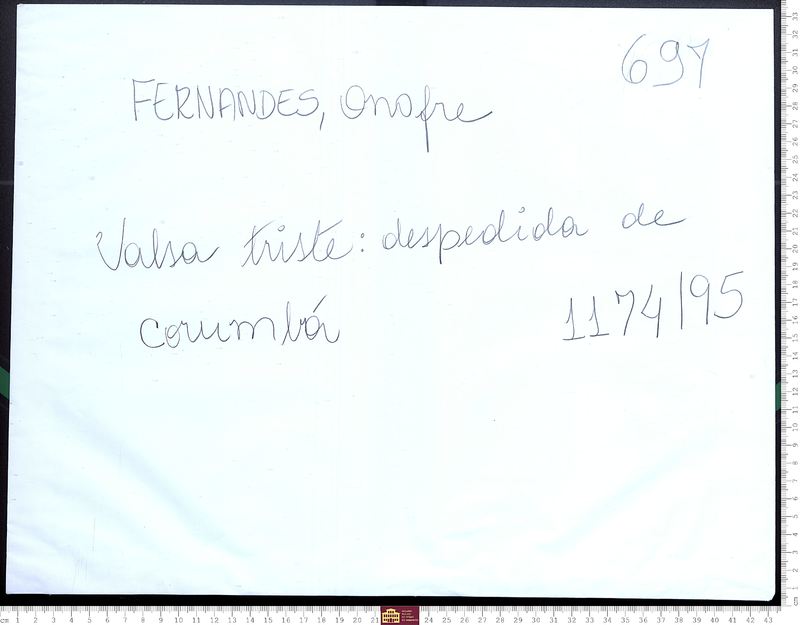 697
FERNANDES, Onofre
Valsa triste: despedida de
corumbá
1174/95